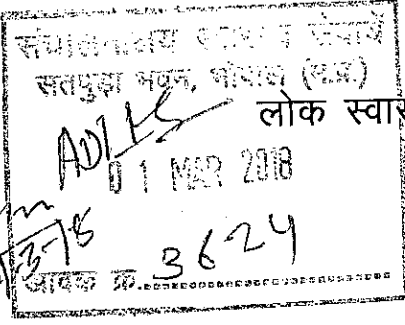 संचालनालय स्वास्थ्य सेवायें
सतपुड़ा भवन, भोपाल (म.प्र.)
लोक स्वास
01 MAR 2018
आवक क्र. 3624